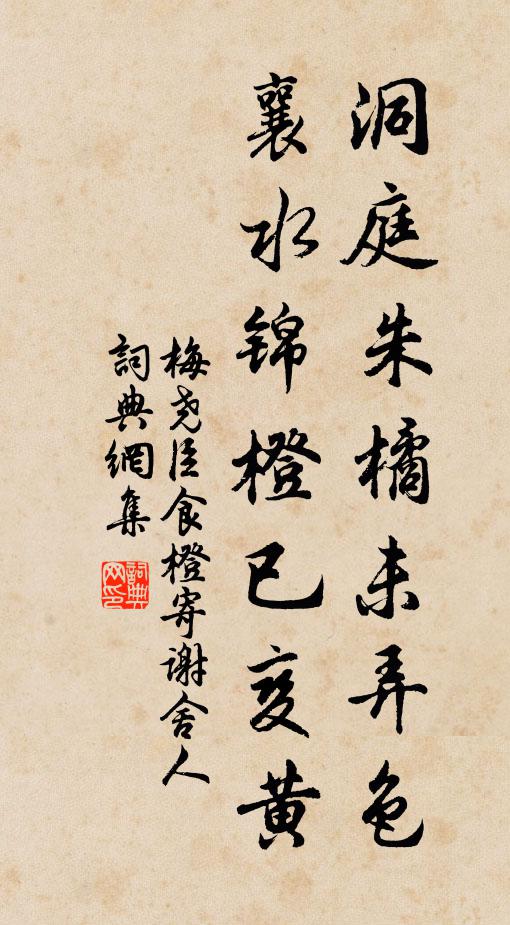 洞庭朱橘未弄色
襄水錦橙已变黄
梅尧臣食橙寄谢舍人
詞典網集
詞典
网印